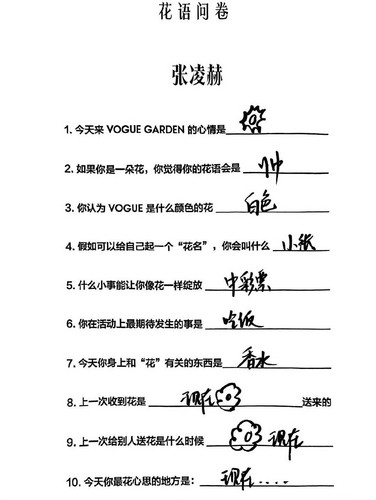 花语问卷
张凌赫
1. 今天来 VOGUE GARDEN 的心情是
2. 如果你是一朵花，你觉得你的花语会是 帅
3. 你认为 VOGUE 是什么颜色的花 白色
4. 假如可以给自己起一个“花名”，你会叫什么 小纸
5. 什么小事能让你像花一样绽放 中彩票
6. 你在活动上最期待发生的事是 吃饭
7. 今天你身上和“花”有关的东西是 香水
8. 上一次收到花是 现在 送来的
9. 上一次给别人送花是什么时候 现在
10. 今天你最花心思的地方是： 现在....